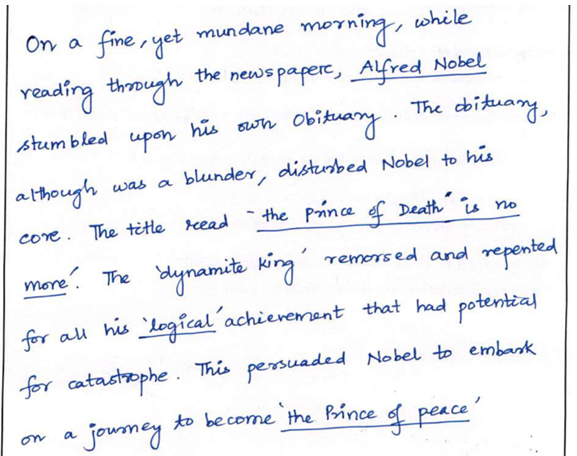 On a fine, yet mundane morning, while
reading through the newspaper, Alfred Nobel
stumbled upon his own Obituary. The obituary,
although was a blunder, disturbed Nobel to his
core. The title read "the Prince of Death" is no
more'. The 'dynamite king' remorsed and repented
for all his 'logical' achievement that had potential
for catastrophe. This persuaded Nobel to embark
on a journey to become 'the Prince of peace'